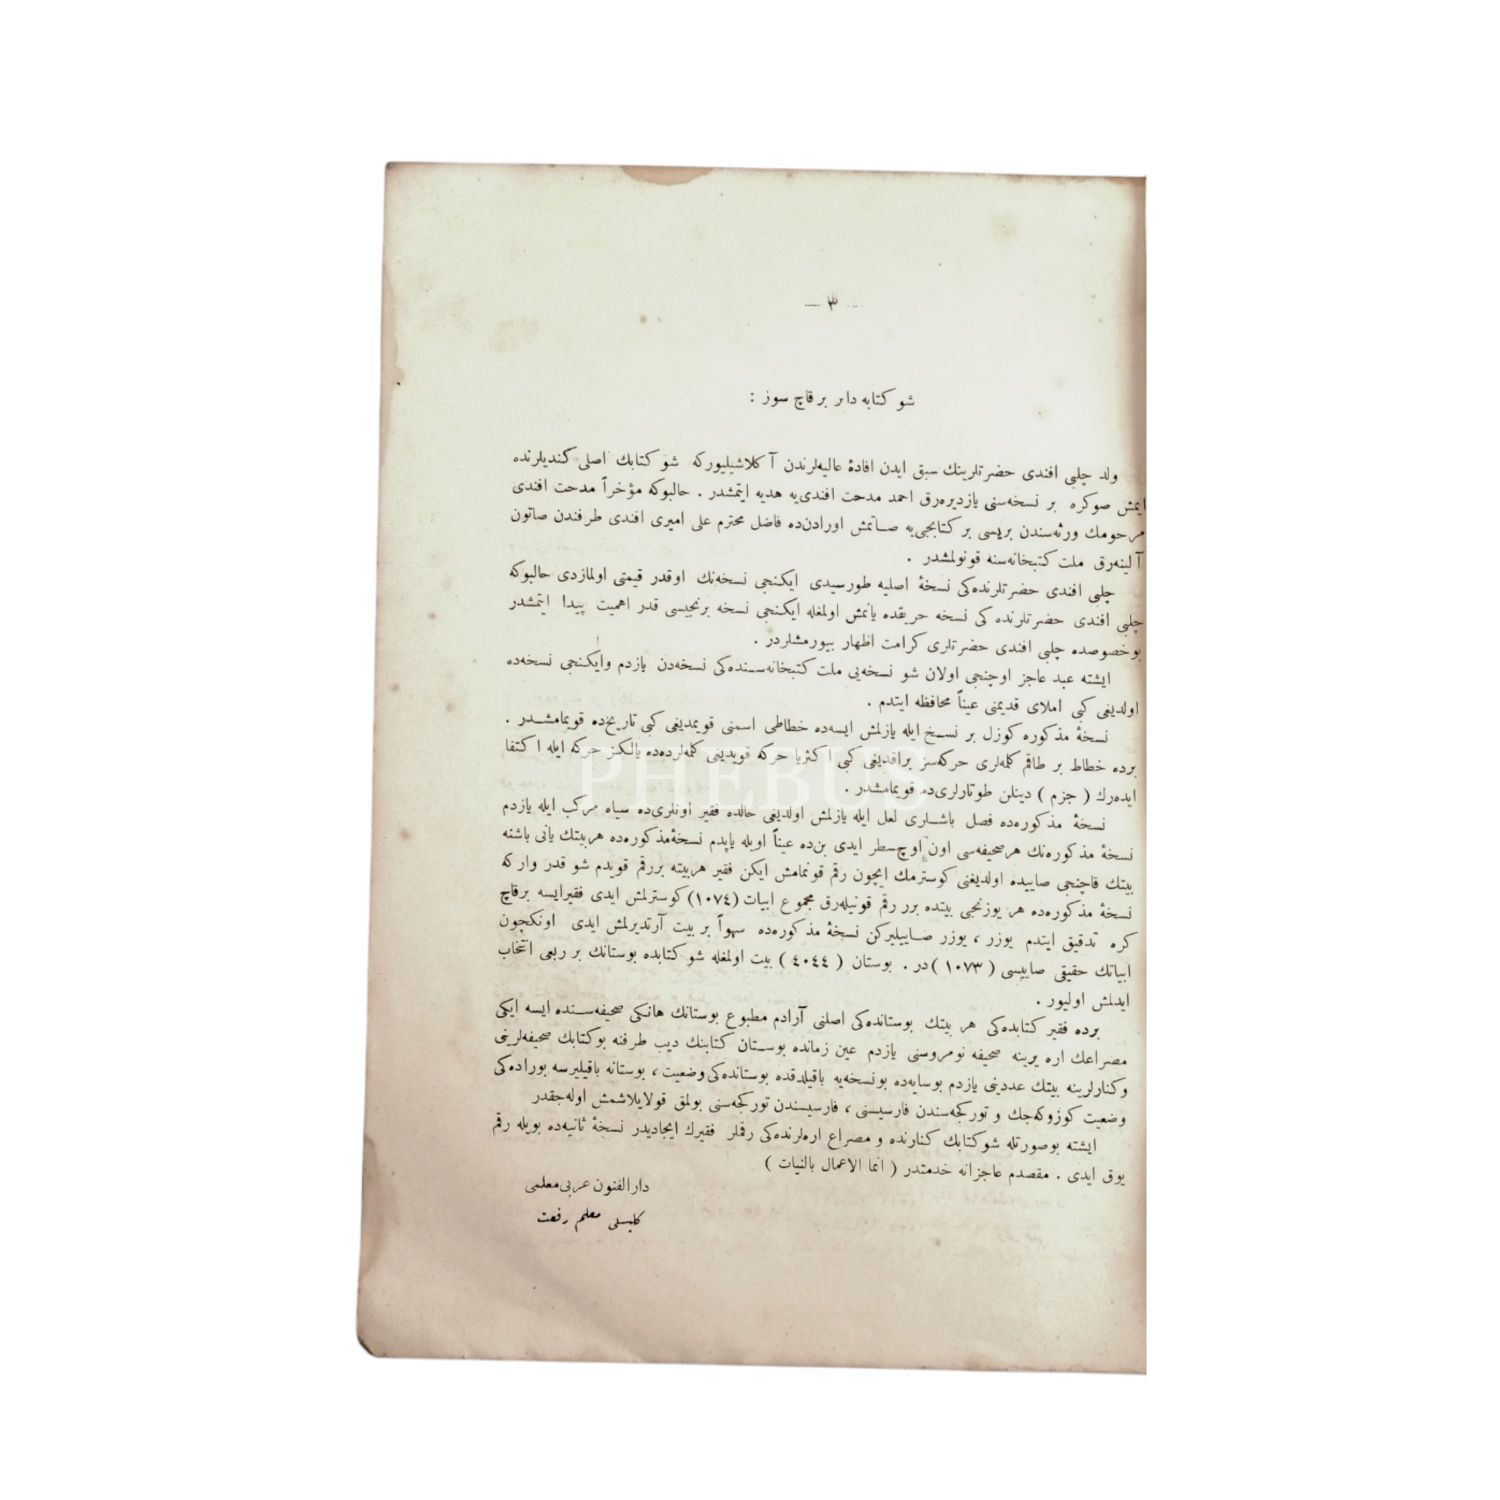 — ٣ —
شو كتابه دائر برقاچ سوز :
ولد چلبی افندی حضرتلرينك سبق ايدن افادۀ عاليه‌لرندن آ كلاشيليوركه شو كتابك اصلی كنديلرنده
ايمش صوكره بر نسخه‌سنی يازديره‌رق احمد مدحت افندی‌يه هديه ايتمشدر . حالبوكه مؤخراً مدحت افندی
مرحومك ورثه‌سندن بريسی بر كتابجی‌يه صاتمش اورادن‌ده فاضل محترم علی اميری افندی طرفندن صاتون
آلينه‌رق ملت كتبخانه‌سنه قونولمشدر .
چلبی افندی حضرتلرنده‌كی نسخۀ اصليه طورسيدی ايكنجی نسخه‌نك اوقدر قيمتی اولمازدی حالبوكه
چلبی افندی حضرتلرنده كی نسخه حريقده يانمش اولمغله ايكنجی نسخه برنجيسی قدر اهميت پيدا ايتمشدر
بوخصوصده چلبی افندی حضرتلری كرامت اظهار بيورمشلردر .
ايشته عبد عاجز اوچنجی اولان شو نسخه‌يی ملت كتبخانه‌سنده‌كی نسخه‌دن يازدم وايكنجی نسخه‌ده
اولديغی كبی املای قديمنی عيناً محافظه ايتدم .
نسخۀ مذكوره كوزل بر نسخ ايله يازلمش ايسه‌ده خطاطی اسمنی قويمديغی كبی تاريخ‌ده قويمامشدر .
برده خطاط بر طاقم كلمه‌لری حركه‌سز براقديغی كبی اكثريا حركه قويديغی كلمه‌لرده‌ده يالكز حركه ايله اكتفا
ايده‌رك ( جزم ) دينلن طوتارلری‌ده قويمامشدر .
نسخۀ مذكوره‌ده فصل باشلری لعل ايله يازلمش اولديغی حالده فقير اونلری‌ده سياه مركب ايله يازدم
نسخۀ مذكوره‌نك هرصحيفه‌سی اون اوچ سطر ايدی بن‌ده عيناً اويله ياپدم نسخۀ‌مذكوره‌ده هربيتك يانی باشنه
بيتك قاچنجی صاييده اولديغنی كوسترمك ايچون رقم قونمامش ايكن فقير هربيته بررقم قويدم شو قدر واركه
نسخۀ مذكوره‌ده هر يوزنجی بيتده برر رقم قونيله‌رق مجموع ابيات (١٠٧٤) كوسترلمش ايدی فقيرايسه برقاچ
كره تدقيق ايتدم يوزر ، يوزر صاييليركن نسخۀ مذكوره‌ده سهواً بر بيت آرتديرلمش ايدی اونكچون
ابياتك حقيقی صاييسی ( ١٠٧٣ )در . بوستان ( ٤٠٤٤ ) بيت اولمغله شو كتابده بوستانك بر ربعی انتخاب
ايدلمش اوليور .
برده فقير كتابده‌كی هر بيتك بوستانده‌كی اصلنی آرادم مطبوع بوستانك هانكی صحيفه‌سنده ايسه ايكی
مصراعك اره يرينه صحيفه نومروسنی يازدم عين زمانده بوستان كتابنك ديب طرفنه بوكتابك صحيفه‌لرينی
وكنارلرينه بيتك عددينی يازدم بوسايه‌ده بونسخه‌يه باقيلدقده بوستانده‌كی وضعيت ، بوستانه باقيليرسه بوراده‌كی
وضعيت كوزوكه‌جك و توركجه‌سندن فارسيسنی ، فارسيسندن توركجه‌سنی بولمق قولايلاشمش اوله‌جقدر
ايشته بوصورتله شوكتابك كنارنده و مصراع اره‌لرنده‌كی رقملر فقيرك ايجاديدر نسخۀ ثانيه‌ده بويله رقم
يوق ايدی . مقصدم عاجزانه خدمتدر ( انما الاعمال بالنيات )
دارالفنون عربی‌معلمی
كليسلی معلم رفعت
PHEBUS